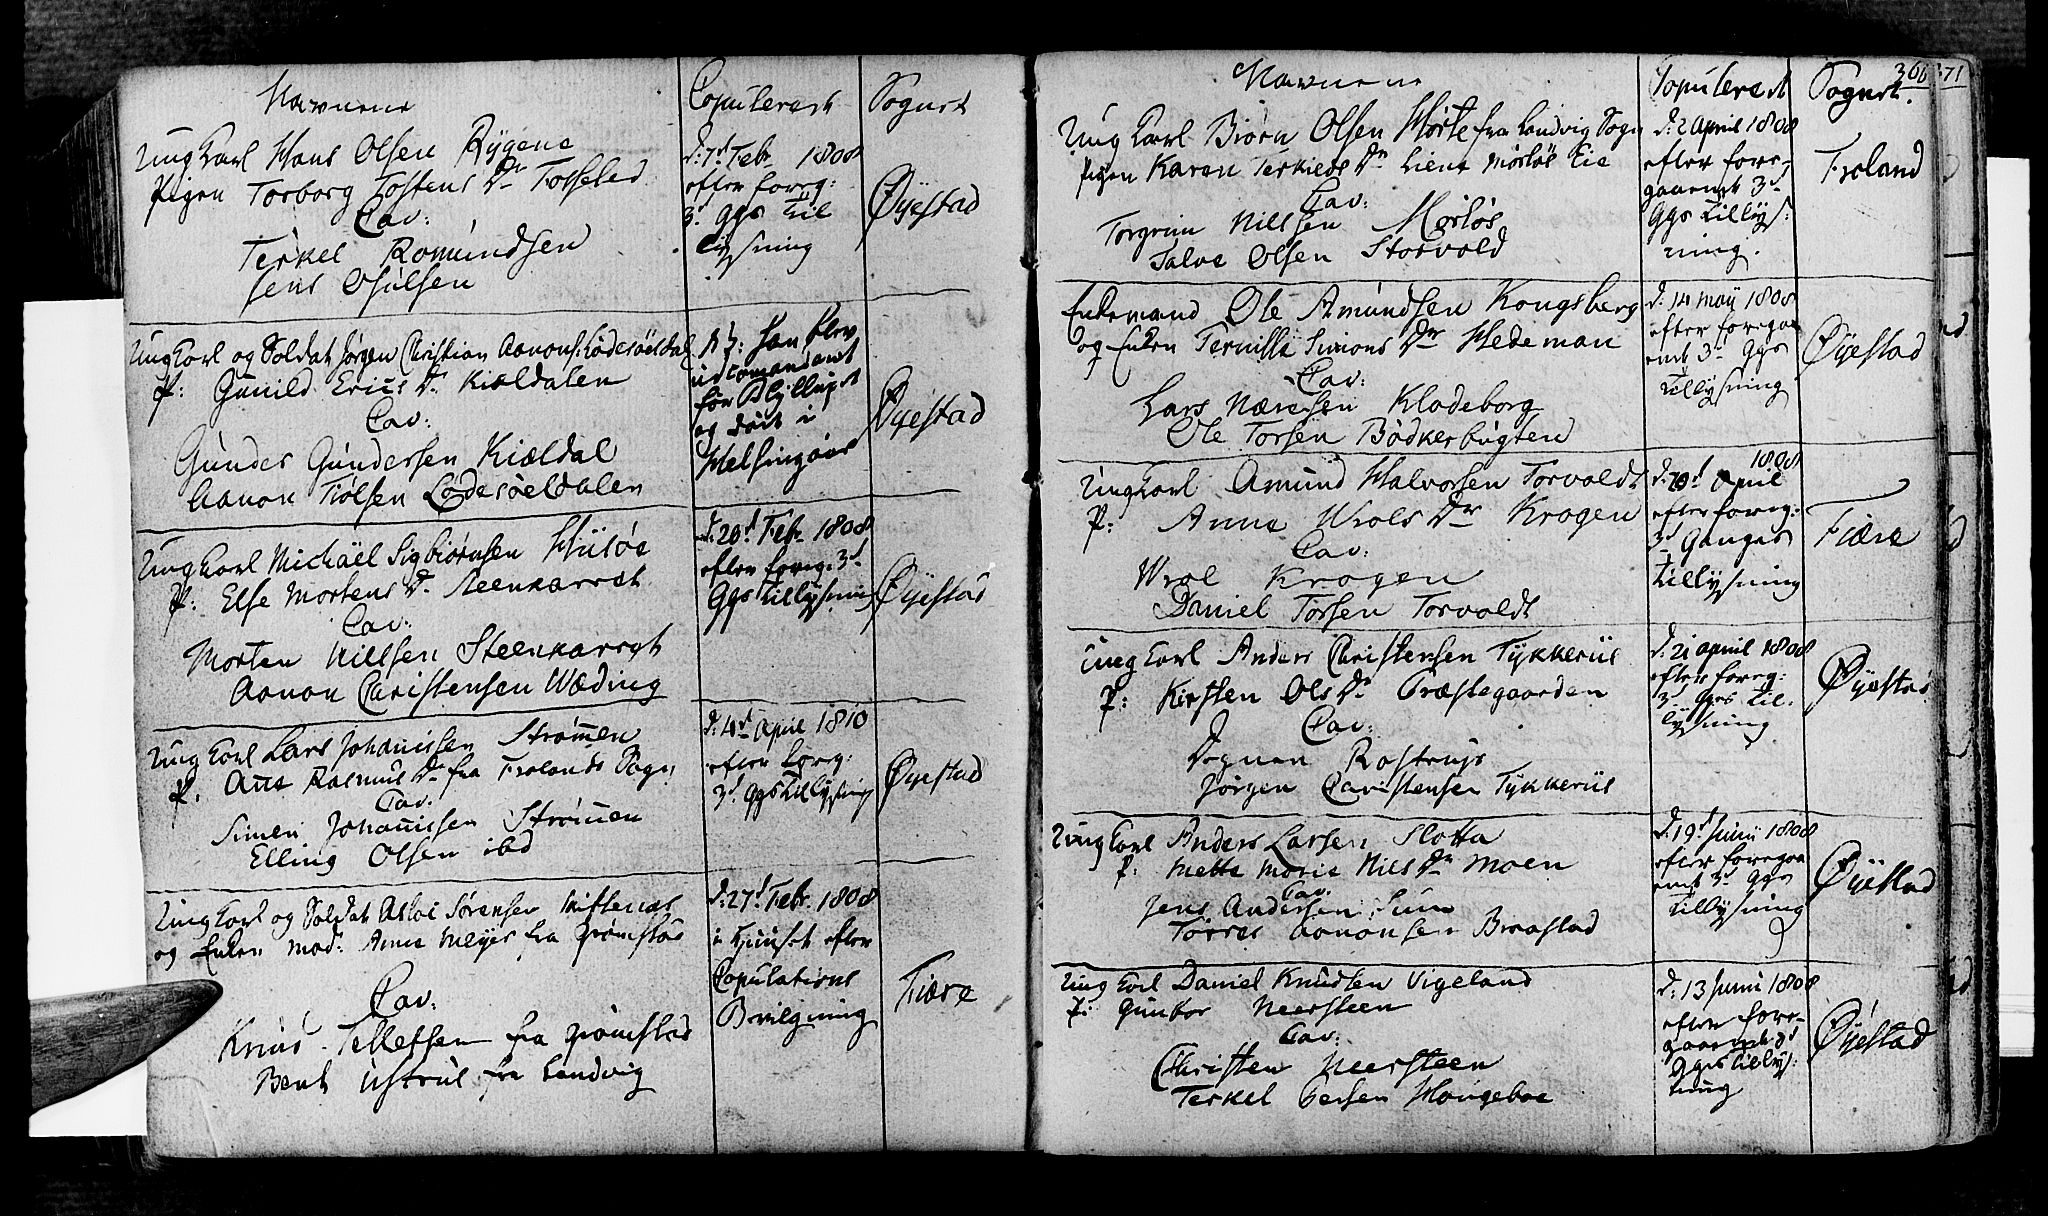 Navnene
Copulerede
Sognet
Ung Karl Hans Olsen Rygene
Pigen Torborg Tostens Dr Fosselid
Cav:
Terkel Romundsen
Jens Osulsen
d: 7d Febr 1808
efter foreg:
3d Ggs Til
lysning
Øyestad
Ung Karl og Soldat Jørgen Christian Aanons: Lødesöeldal
P: Gunild Erics Dr Kieldalen
Cav:
Gunder Gundersen Kiældal
Aanon Tiölsen Lødesöeldalen
NB: han blev
udcomanderet
før Byllupet
og döde i
Helsingöer
Øyestad
Ung Karl Michaël Sigbiörnsen Hisöe
P: Else Mortens Dr Steenkarret
Cav:
Morten Nillsen Steenkarret
Aanon Christensen Wæding
d: 20d Febr 1808
efter foreg: 3d
Ggs Tillysning
Øyestad
Ung Karl Lars Johannissen Strømen
P. Ane Rasmus Dr fra Frolands Sogn
Cav.
Simen Johannissen Strömen
Elling Olsen ibd
d: 4d April 1810
efter foreg:
3d Ggs Tillysning
Øyestad
Ung Karl og Soldat Asloe Sørensen
og Enken Mad: Anne Meyer fra Grömstad
Cav:
Knud Tellefsen fra Grömstad
Bent Ustrud fra Landvig
d: 27d Febr. 1808
i Huuset efter
Copulations
Bevilgning
Fiære
366
371
Navnene
Copulerede
Sognet.
Ung Karl Biörn Olsen Hörte fra Landvig Sogn
Pigen Karen Terkilds Dr Liene Mörlös Eie
Cav:
Torgrim Nillsen Mörlös
Salve Olsen Storvold
d: 2 April 1808
efter fore-
gaaende 3d
Ggs Tillys:
ning.
Froland
Enkemand Ole Amundsen Kongsberg
og Enken Pernille Simons Dr Hedeman
Cav:
Lars Næresen Klodeborg
Ole Torsen Bödkerbugten
d: 14 May 1808
efter foregaa
ende 3d Ggs
Tillysning
Øyestad
Ung Karl Amund Halvorsen Torvoldt
P: Anne Wrols Dr Krogen
Cav:
Wrol Krogen
Daniel Torsen Torvoldt
1808
d: 20d April
efter foreg:
3d Ganges
Tillysning
Fiære
Ung Karl Anders Christensen Tykkeriis
P: Kirsten Ols Dr Præstegaarden
Cav:
Degnen Rostrup
Jörgen Christensen Tykkeriis
d: 21 April 1808
efter foreg:
3d Ggs Til-
lysning
Øyestad
Ung Karl Anders Larsen Slotta
P: Mette Marie Nils Dr Moen
Cav.
Jens Andersen Sum
Torres Aanonsen Braastad
d: 19d Junii 1808
efter foregaa
ende 3d Ggs
Tillysning
Øyestad
Ung Karl Daniel Knudsen Vigeland
P: Gunbor Neersteen
Cav:
Christen Neersteen
Terkel Persen Hougeboe
d: 13 Juni 1808
efter fore-
gaaende 3d
Ggs Tillys:
ning
Øyestad